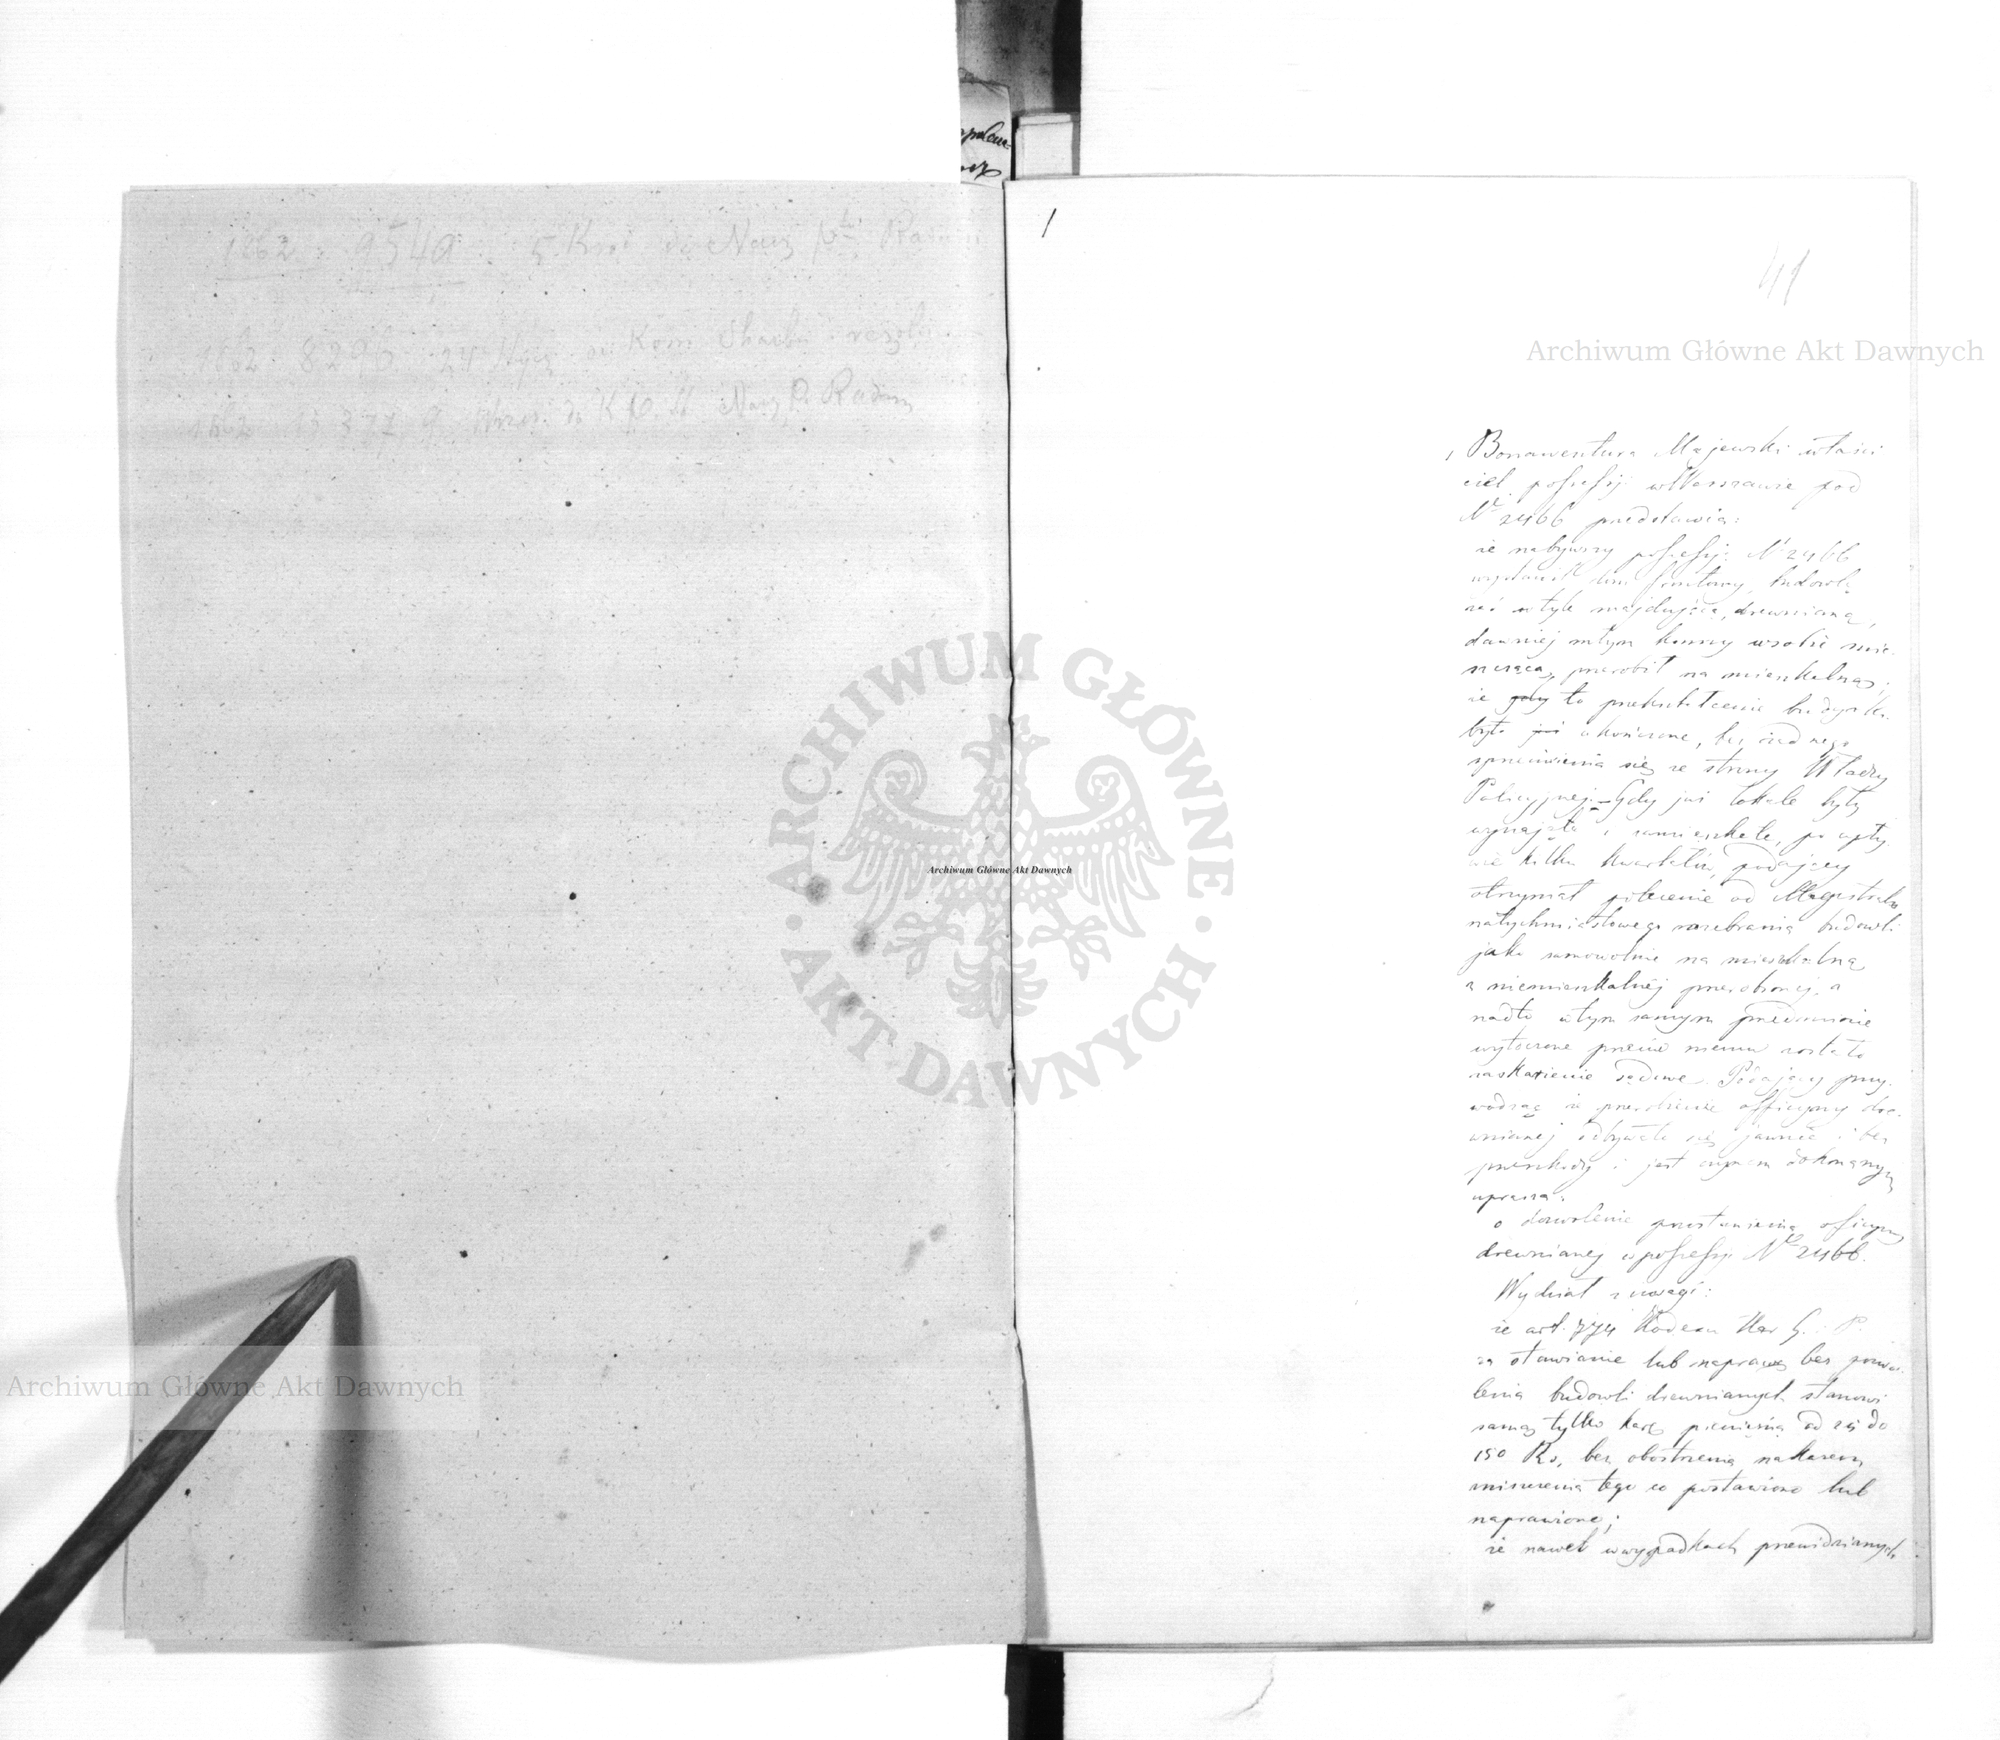 1862 9549 5 Kwi do Nacz Pu Radom
1862 8296 24 do Kom Skarbu
1862 15371 9 Wrześ. do K Nacz P. Radom
1
41
Archiwum Główne Akt Dawnych
1 Bonawentura Majewski właści
ciel possessyi w Warszawie pod
Nr 2466 przedstawia:
że nabywszy possessyą Nr 2466
wystawił dom frontowy, budowlę
zaś w tyle znajdującą, drewnianą,
dawniej młyn konny w sobie mie-
szczącą, przerobił na mieszkalną;
że gdy to przekształcenie budynku
było już ukończone, bez żadnego
sprzeciwienia się ze strony Władzy
Policyjnej. – Gdy już lokale były
wynajęte i zamieszkałe, po upły-
wie kilku kwartałów, podający
otrzymał polecenie od Magistratu
natychmiastowego rozebrania budowli
jako samowolnie na mieszkalną
z niemieszkalnéj przerobionéj, a
nadto w tym samym przedmiocie
wytoczone przeciw niemu zostało
zaskarżenie sądowe. Podający przy-
wodząc że przerobienie officyny dre-
wnianej odbywało się jawnie i bez
przeszkody i jest czynem dokonanym
uprasza:
o dozwolenie pozostawienia officyny
drewnianej w possessyi Nr 2466.
Wydział z uwagi:
że art. Kodexu Kar G. i P.
za stawianie lub naprawę bez pozwo-
lenia budowli drewnianych stanowi
samą tylko karę pieniężną od 25 do
150 Rs, bez obostrzenia nakazem
zniszczenia tego co postawione lub
naprawione;
że nawet w wypadkach przewidzianych
ARCHIWUM GŁÓWNE AKT DAWNYCH
Archiwum Główne Akt Dawnych
Archiwum Główne Akt Dawnych